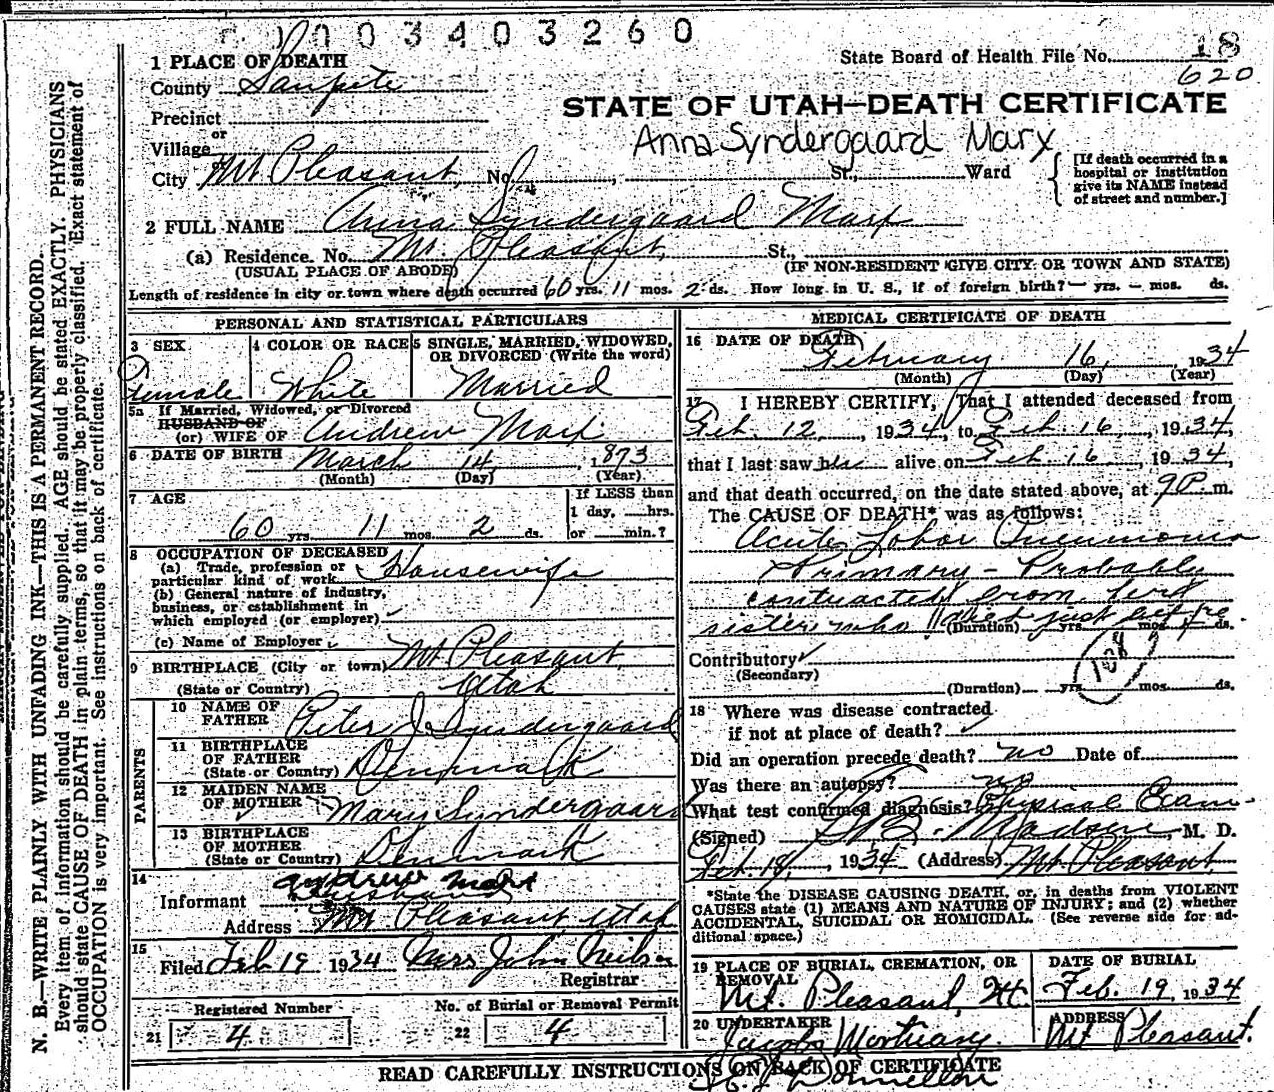 0 0 3 4 0 3 2 6 0
1 PLACE OF DEATH
State Board of Health File No. 18
620
County Sanpete
STATE OF UTAH—DEATH CERTIFICATE
Precinct
or
Village
Anna Syndergaard Marx
or
City Mt Pleasant, No. , St., Ward
[If death occurred in a
hospital or institution
give its NAME instead
of street and number.]
2 FULL NAME Anna Syndergaard Marx
(a) Residence. No. Mt. Pleasant, St.,
(USUAL PLACE OF ABODE) (IF NON-RESIDENT GIVE CITY OR TOWN AND STATE)
Length of residence in city or town where death occurred 60 yrs. 11 mos. 2 ds. How long in U. S., if of foreign birth? — yrs. — mos. ds.
PERSONAL AND STATISTICAL PARTICULARS
3 SEX
Female
4 COLOR OR RACE
White
5 SINGLE, MARRIED, WIDOWED,
OR DIVORCED (Write the word)
Married
5a If Married, Widowed, or Divorced
HUSBAND OF
(or) WIFE OF Andrew Marx
6 DATE OF BIRTH March 14, 1873
(Month) (Day) (Year)
7 AGE
60 yrs. 11 mos. 2 ds.
If LESS than
1 day, hrs.
or min.?
8 OCCUPATION OF DECEASED
(a) Trade, profession or
particular kind of work Housewife
(b) General nature of industry,
business, or establishment in
which employed (or employer)
(c) Name of Employer
9 BIRTHPLACE (City or town) Mt Pleasant,
(State or Country) Utah
PARENTS
10 NAME OF
FATHER Peter J Syndergaard
11 BIRTHPLACE
OF FATHER
(State or Country) Denmark
12 MAIDEN NAME
OF MOTHER Mary Syndergaard
13 BIRTHPLACE
OF MOTHER
(State or Country) Denmark
14
Andrew Marx
Informant Husband
Address Mt Pleasant, Utah
15
Filed Feb 19 1934 Mrs John Neilson
Registrar
Registered Number
21 4
No. of Burial or Removal Permit
22 4
MEDICAL CERTIFICATE OF DEATH
16 DATE OF DEATH
February 16, 1934
(Month) (Day) (Year)
17 I HEREBY CERTIFY, That I attended deceased from
Feb. 12, 1934, to Feb 16, 1934,
that I last saw her alive on Feb 16, 1934,
and that death occurred, on the date stated above, at 9 P. m.
The CAUSE OF DEATH* was as follows:
Acute Lobar Pneumonia
Primary - Probably
contracted from her
sister who died just before
(Duration) yrs. mos. ds.
Contributory
(Secondary)
108
(Duration) yrs. mos. ds.
18 Where was disease contracted
if not at place of death?
Did an operation precede death? no Date of
Was there an autopsy? no
What test confirmed diagnosis? Physical Exam.
(Signed) Madsen, M. D.
Feb. 18, 1934 (Address) Mt Pleasant,
*State the DISEASE CAUSING DEATH, or, in deaths from VIOLENT
CAUSES state (1) MEANS AND NATURE OF INJURY; and (2) whether
ACCIDENTAL, SUICIDAL OR HOMICIDAL. (See reverse side for ad-
ditional space.)
19 PLACE OF BURIAL, CREMATION, OR
REMOVAL
Mt. Pleasant, Ut.
DATE OF BURIAL
Feb. 19, 1934
20 UNDERTAKER
Jacobs Mortuary.
ADDRESS
Mt Pleasant.
READ CAREFULLY INSTRUCTIONS ON BACK OF CERTIFICATE
N. B.—WRITE PLAINLY WITH UNFADING INK—THIS IS A PERMANENT RECORD.
Every item of information should be carefully supplied. AGE should be stated EXACTLY. PHYSICIANS
should state CAUSE OF DEATH in plain terms, so that it may be properly classified. Exact statement of
OCCUPATION is very important. See instructions on back of certificate.